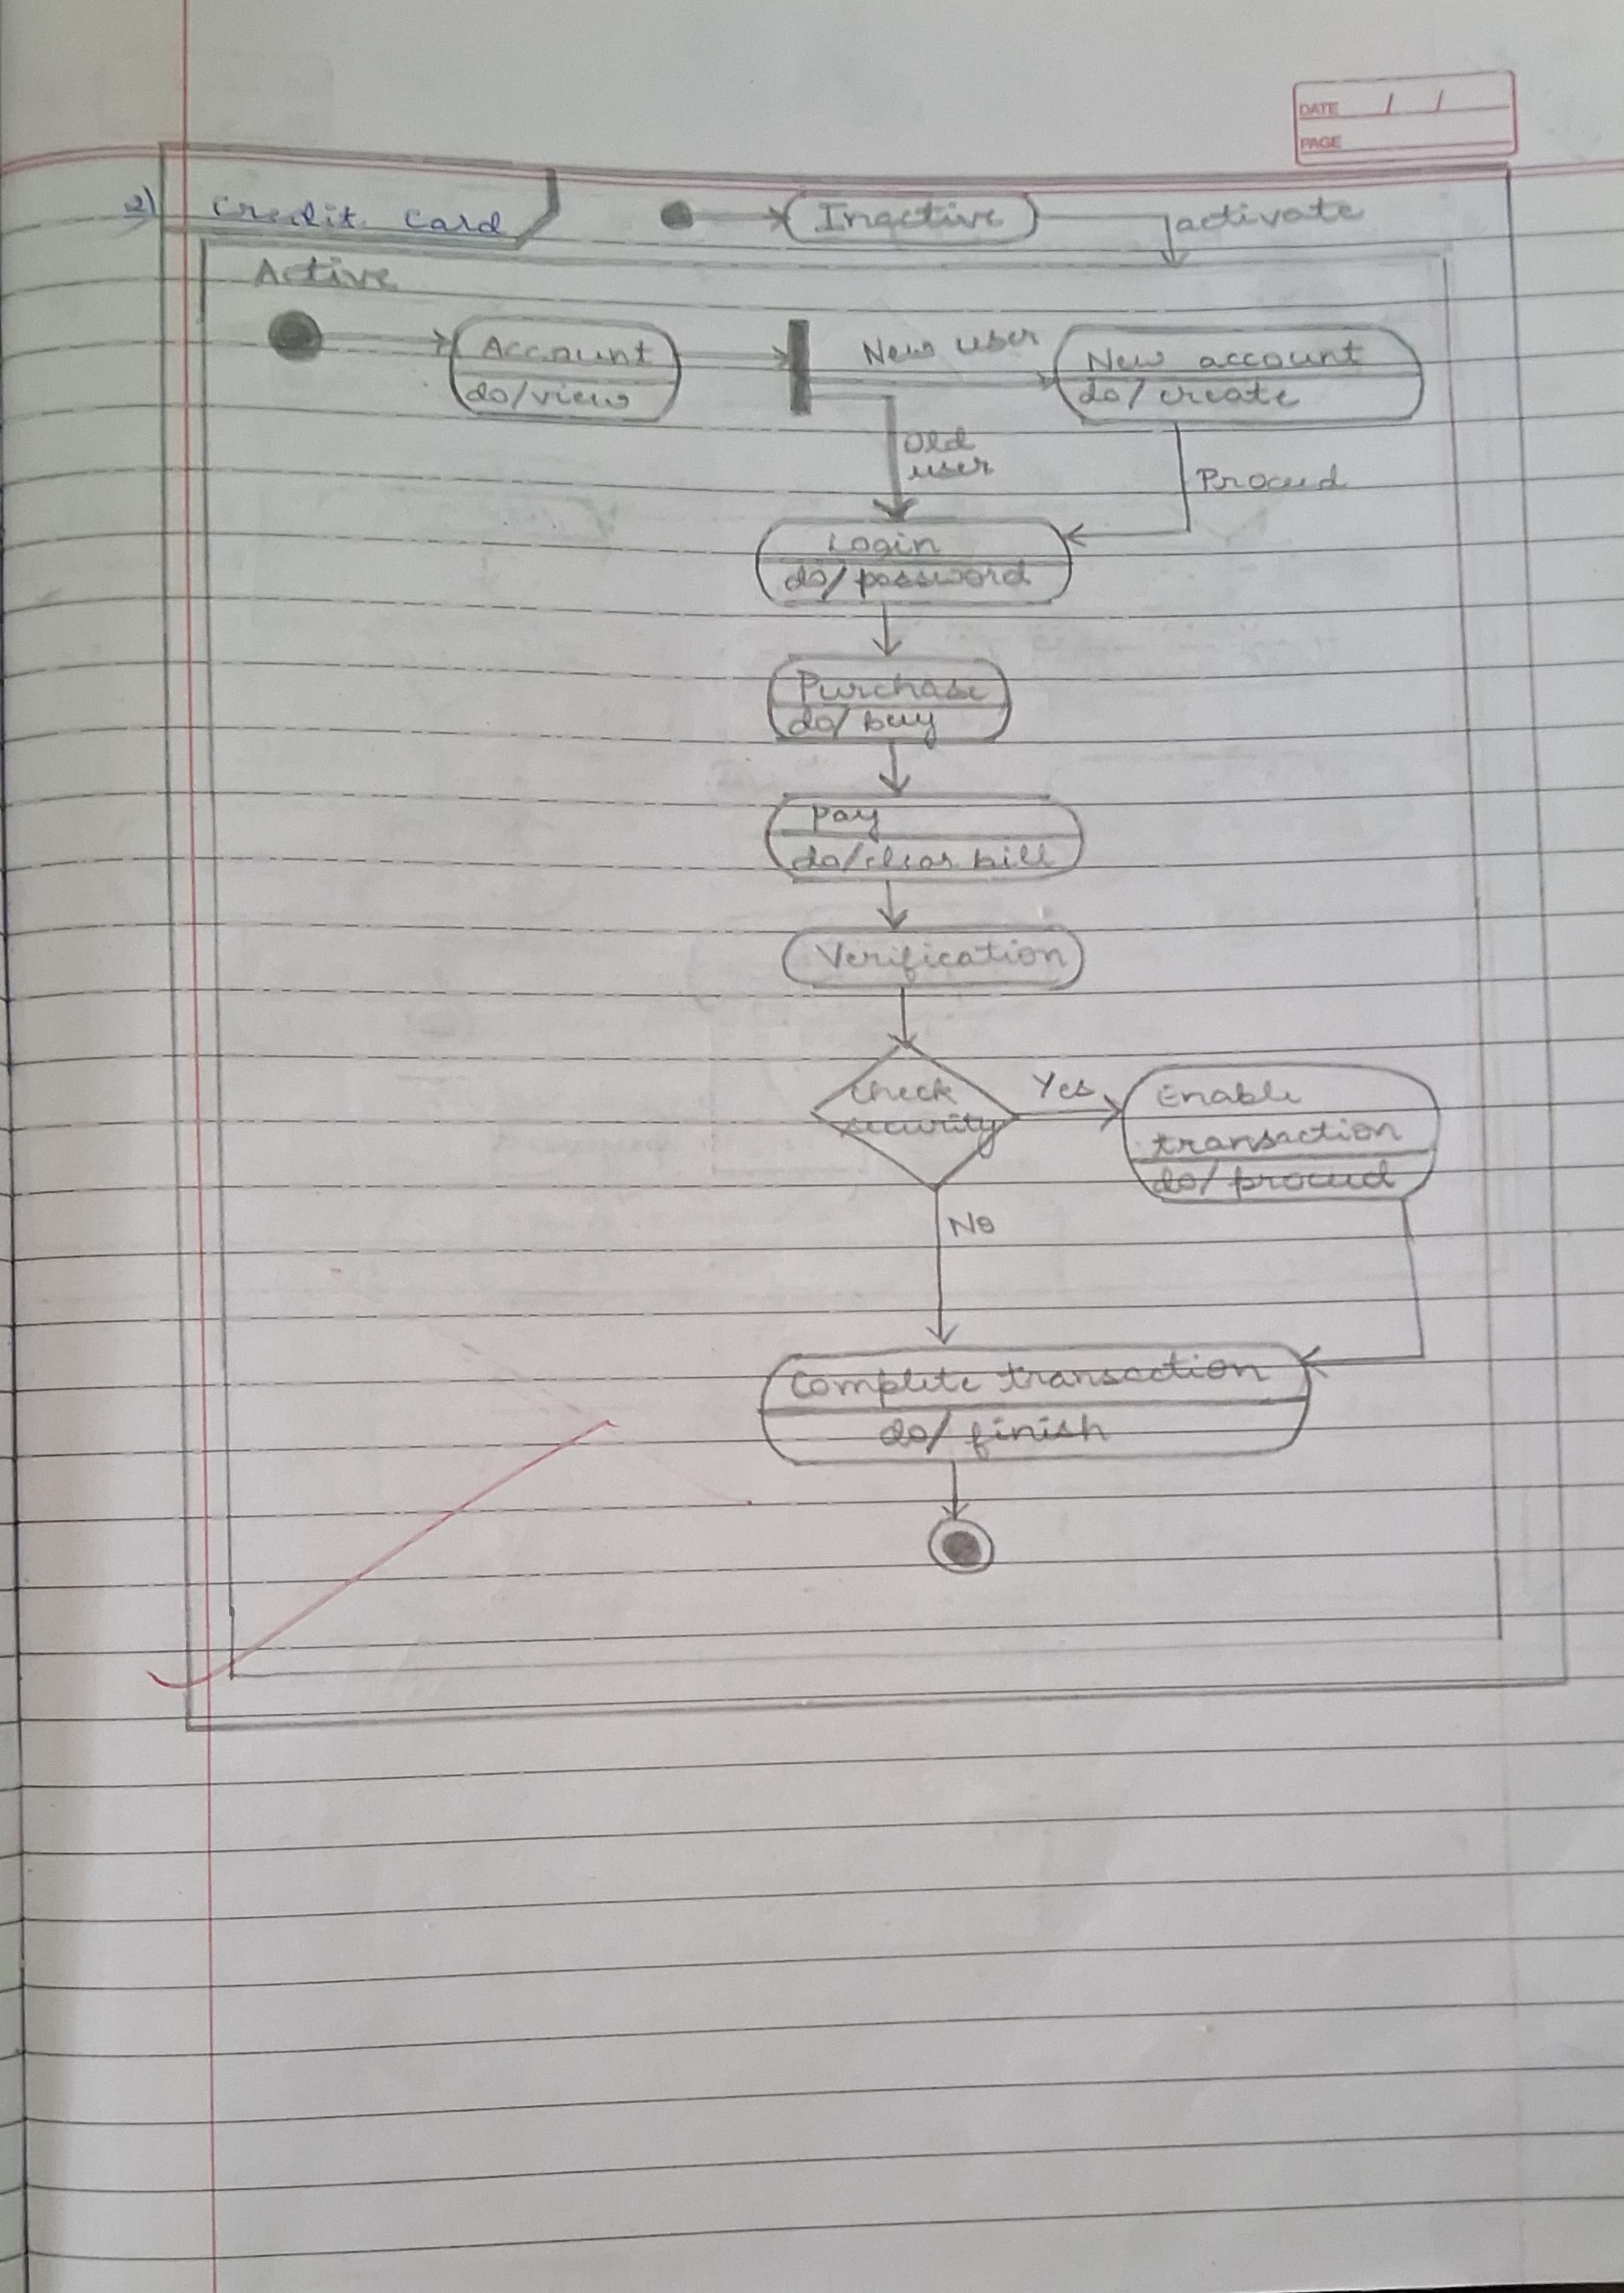 DATE / /
PAGE
2) Credit Card
Inactive
activate
Active
Account
do/view
New user
New account
do/create
Old
user
Proceed
Login
do/password
Purchase
do/buy
Pay
do/clear bill
Verification
Check
security
Yes
Enable
transaction
do/proceed
No
Complete transaction
do/finish